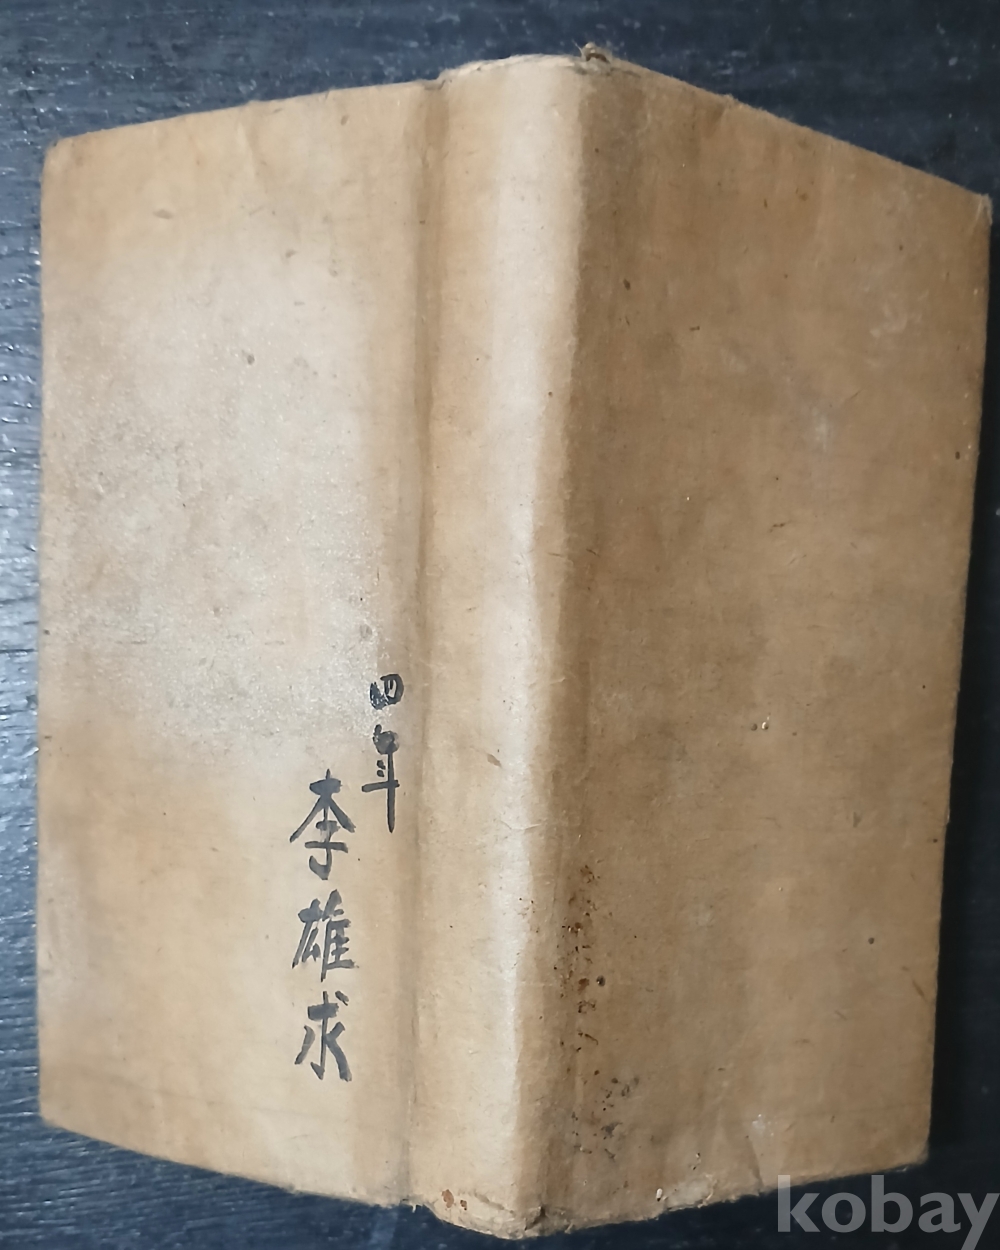 四年
李雄求
kobay